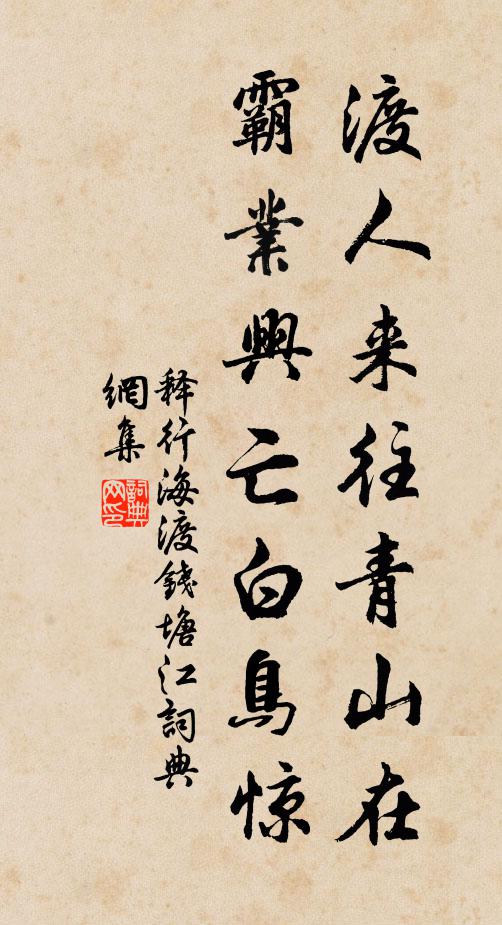 渡人来往青山在
霸業興亡白鳥惊
释行海渡錢塘江詞典
網集
詞典
网印